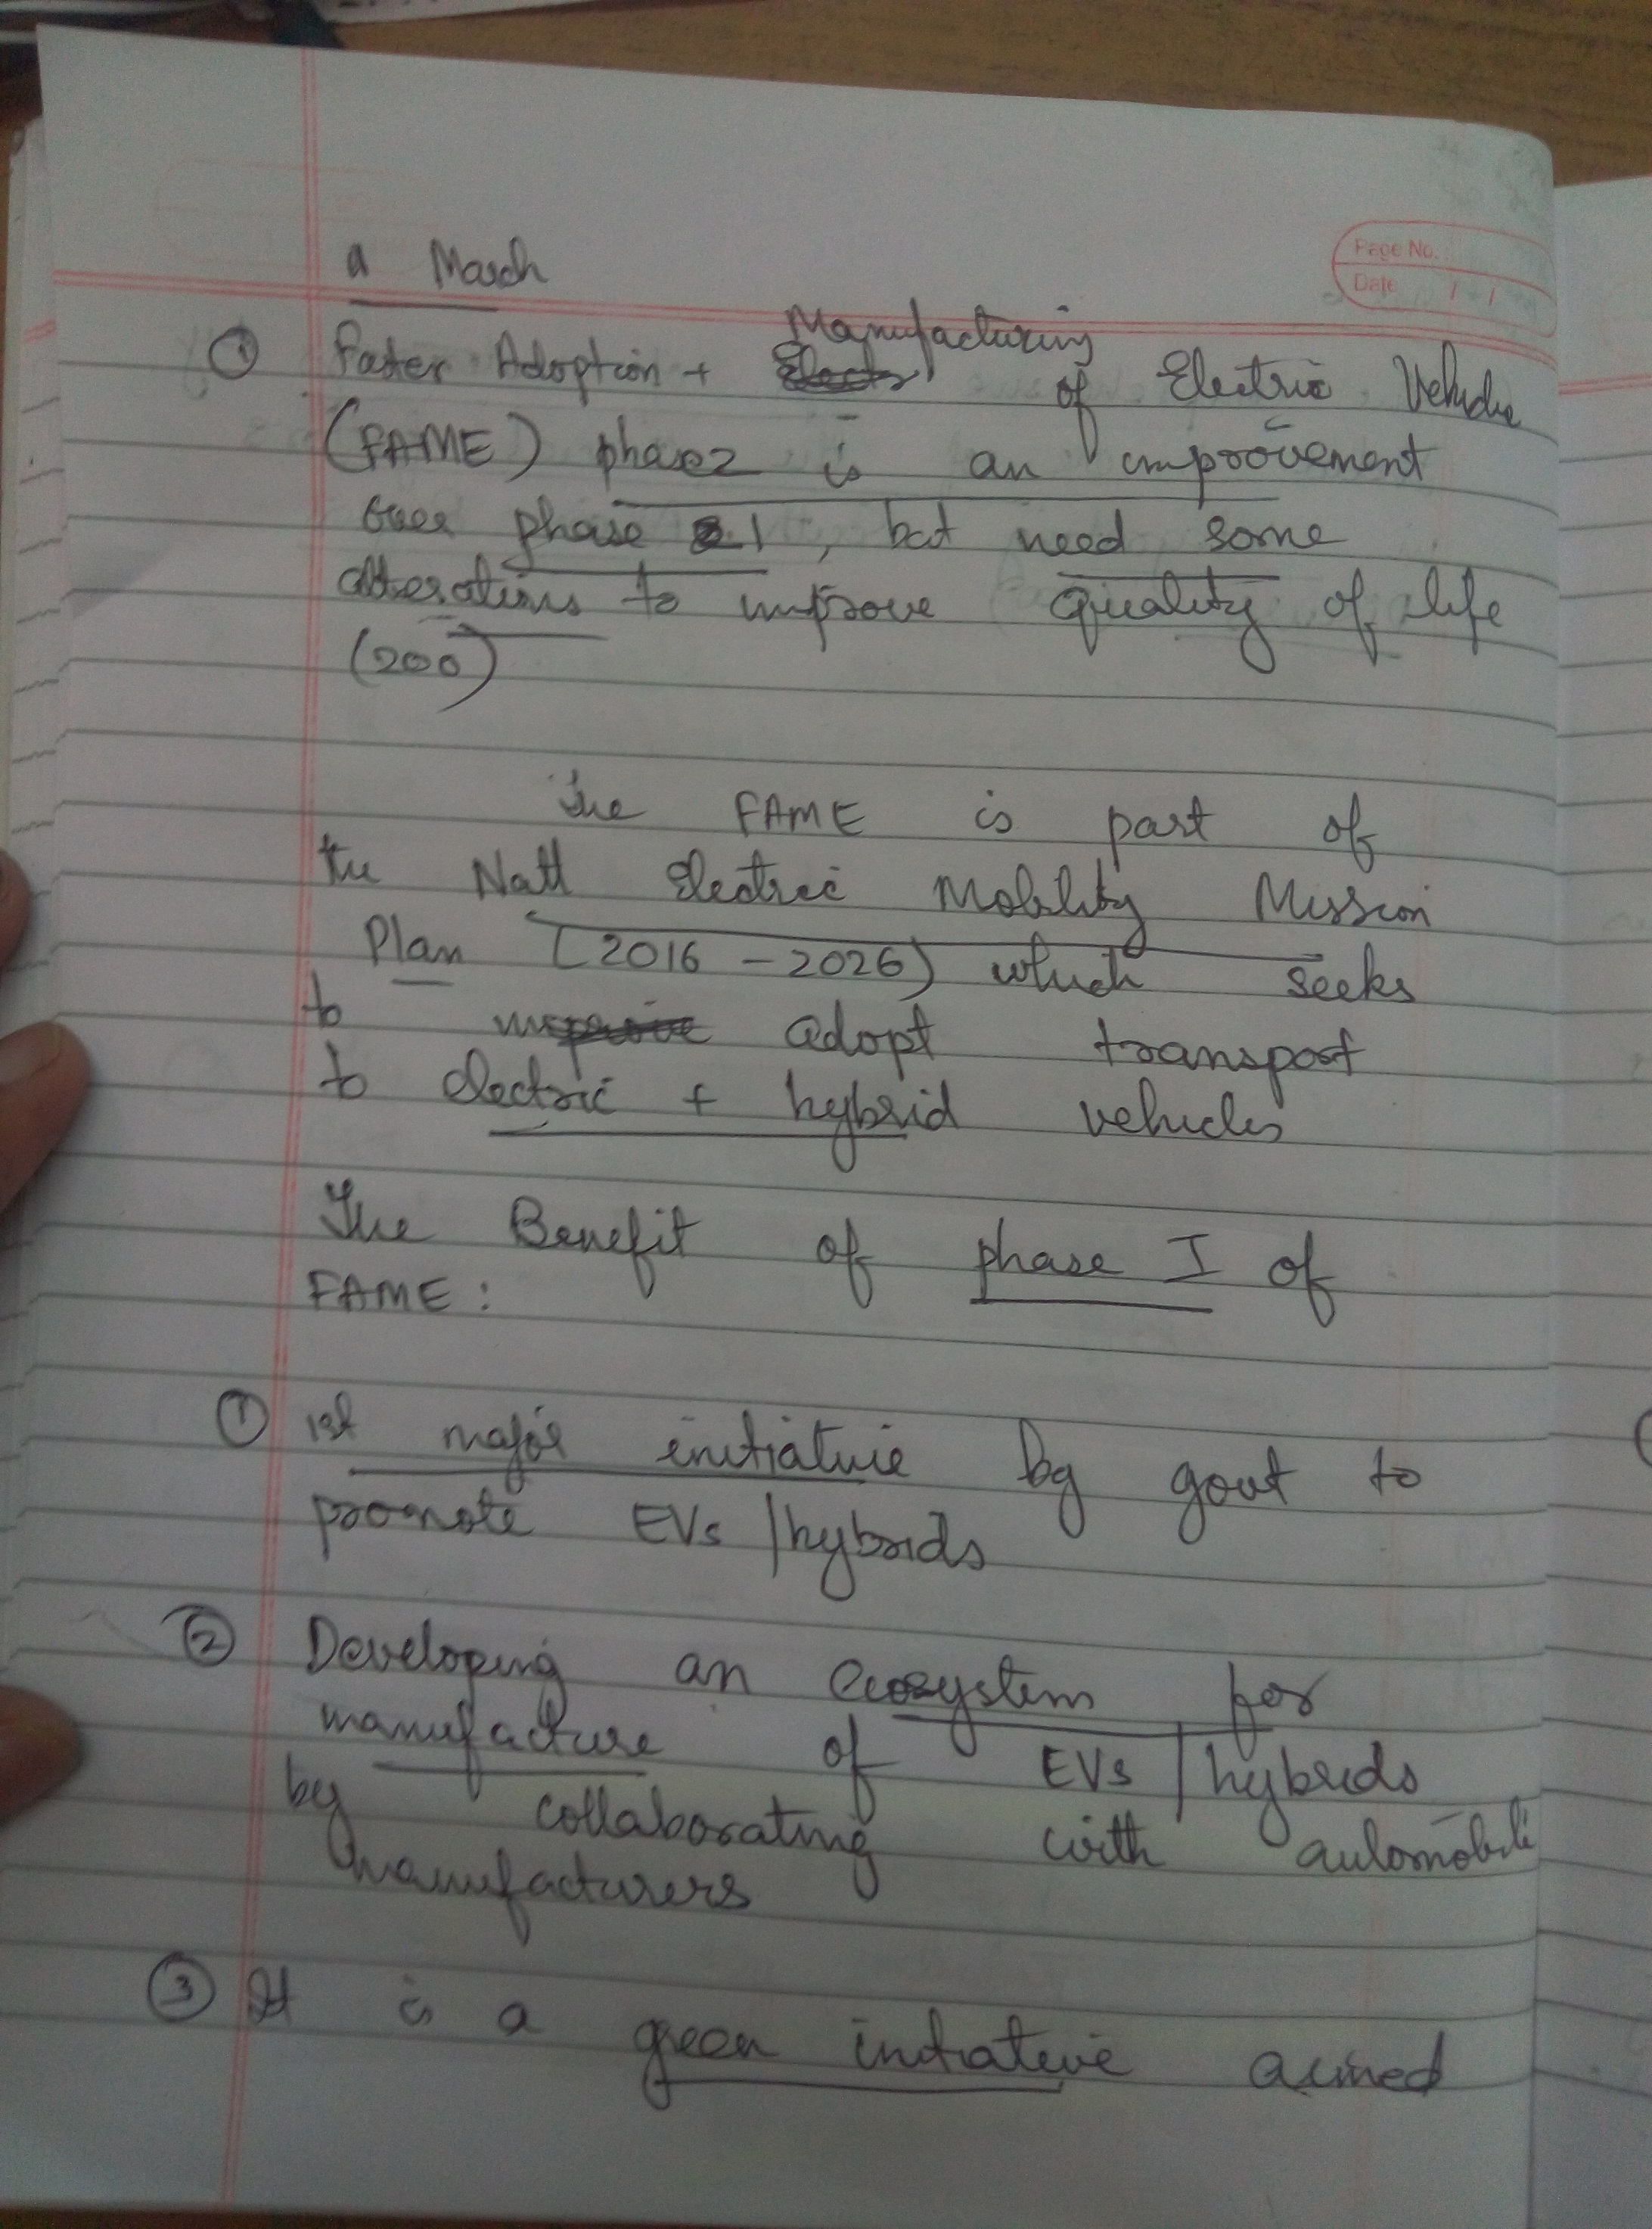 March
Page No.
Date / /
① Faster Adoption + Manufacturing of Electric Vehicle
(FAME) phase 2 is an improvement
over phase 1, but need some
alterations to improve quality of life
(200)
The FAME is part of
the Natl Electric Mobility Mission
Plan (2016 - 2026) which seeks
to adopt transport
to electric + hybrid vehicles
The Benefit of phase I of
FAME :
① 1st major initiative by govt to
promote EVs / hybrids
② Developing an ecosystem for
manufacture of EVs / hybrids
by collaborating with automobile
manufacturers
③ It is a green initiative aimed